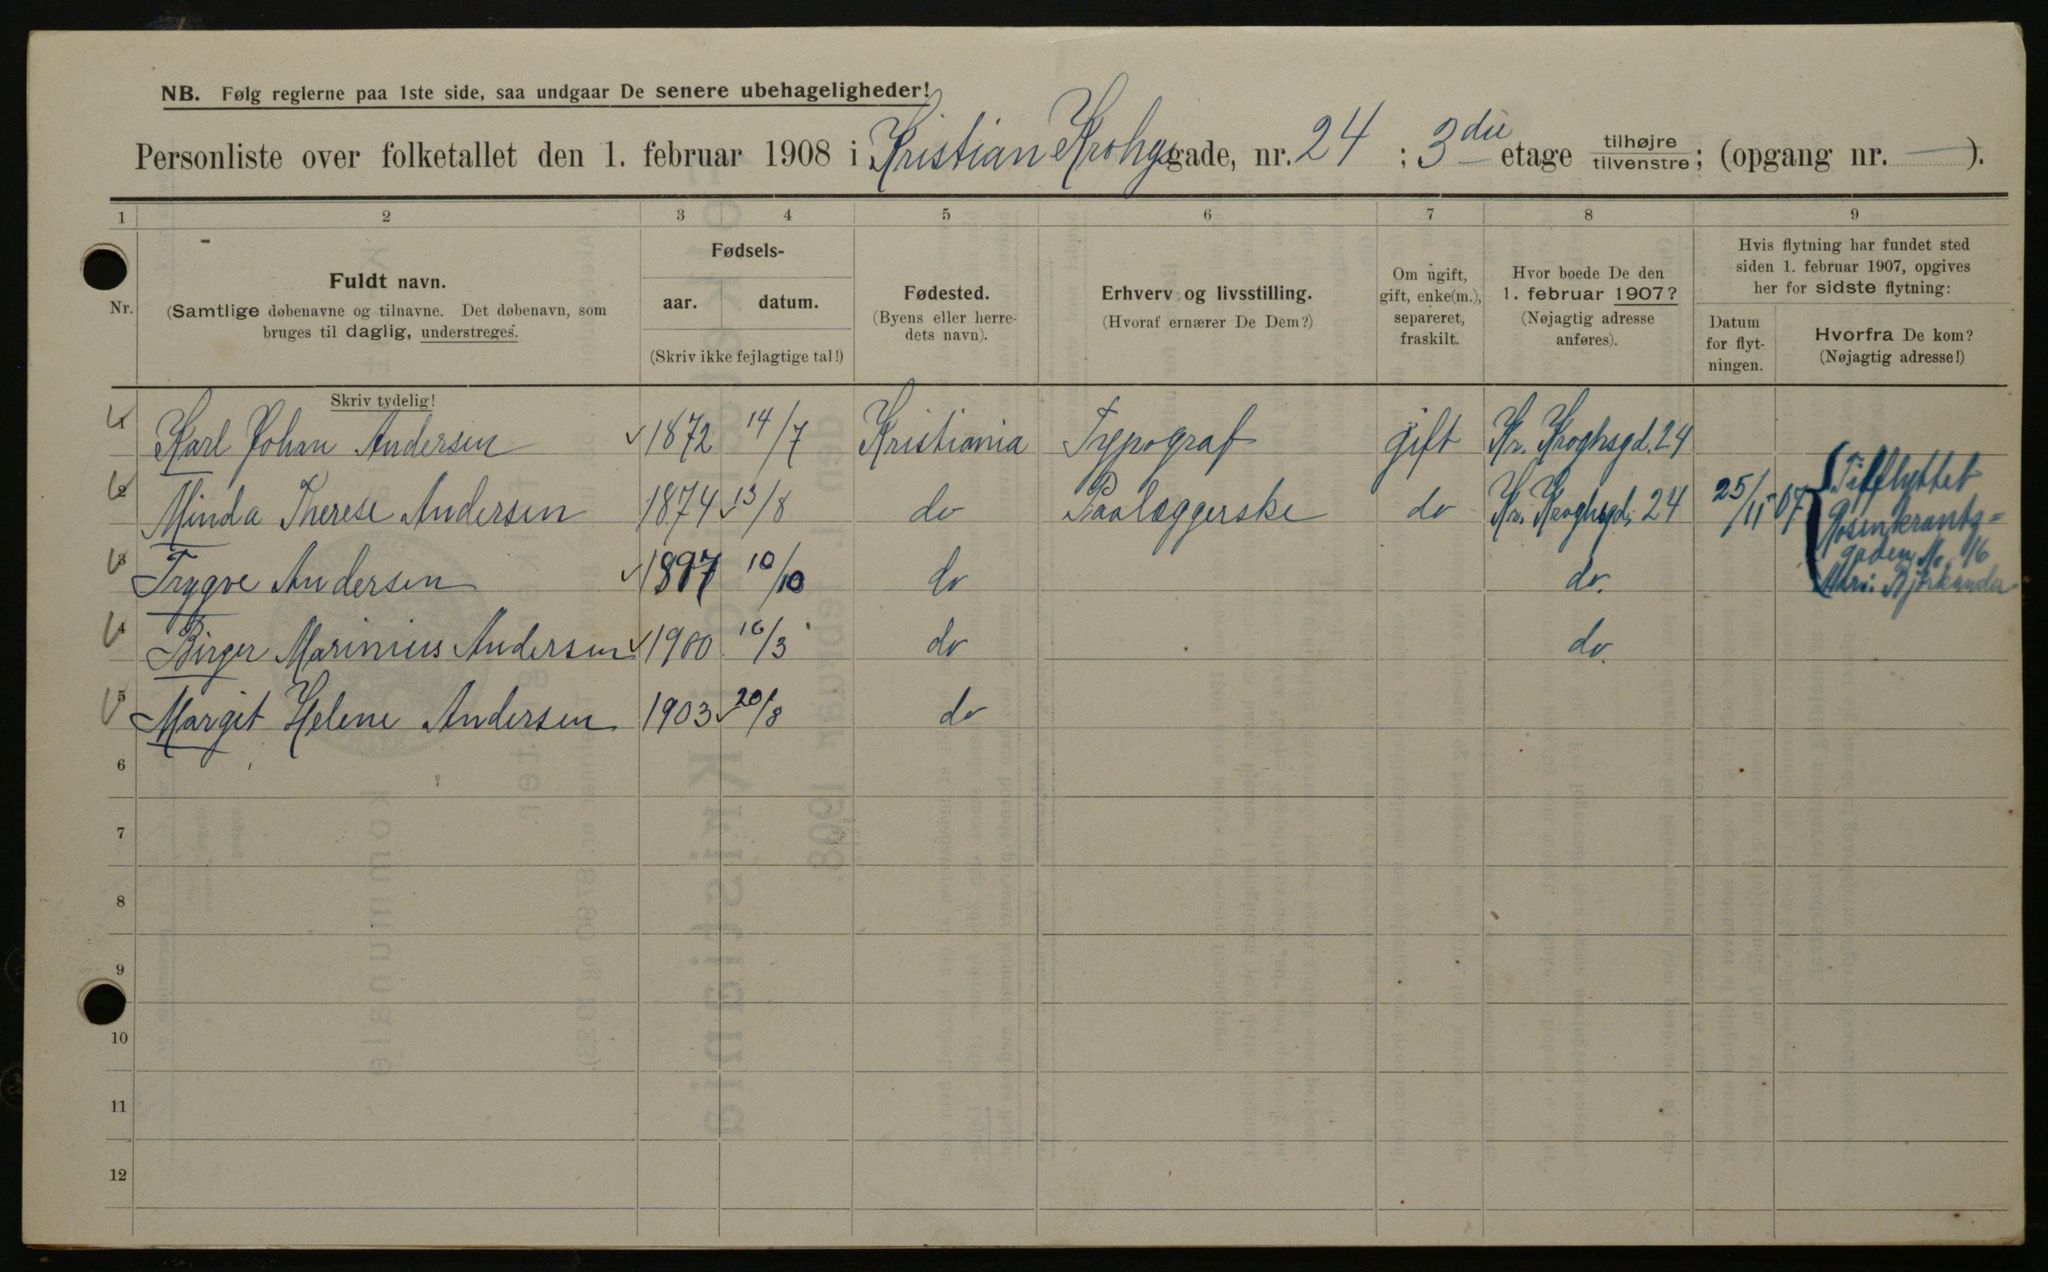 NB. Følg reglerne paa 1ste side, saa undgaar De senere ubehageligheder!
Personliste over folketallet den 1. februar 1908 i Kristian Krohgsgade, nr. 24 ; 3die etage tilhøjre/tilvenstre; (opgang nr. — ).
1 2 3 4 5 6 7 8 9
Nr.
Fuldt navn.
(Samtlige døbenavne og tilnavne. Det døbenavn, som
bruges til daglig, understreges.
Fødsels-
aar. datum.
(Skriv ikke fejlagtige tal!)
Fødested.
(Byens eller herre-
dets navn).
Erhverv og livsstilling.
(Hvoraf ernærer De Dem?)
Om ugift,
gift, enke(m.),
separeret,
fraskilt.
Hvor boede De den
1. februar 1907?
(Nøjagtig adresse
anføres).
Hvis flytning har fundet sted
siden 1. februar 1907, opgives
her for sidste flytning:
Datum
for flyt-
ningen.
Hvorfra De kom?
(Nøjagtig adresse!)
Skriv tydelig!
1 Karl Johan Andersen 1872 14/7 Kristiania Typograf gift Kr. Kroghsgd. 24
2 Minda Therese Andersen 1874 13/8 do Paalæggerske do Kr. Kroghsgd. 24 25/11 07
Tilflyttet
Rosenkrantz-
gaden No. 16
3 Trygve Andersen 1897 10/10 do do.
4 Birger Marinius Andersen 1900 16/3 do do.
5 Margit Helene Andersen 1903 20/8 do
6
7
8
9
10
11
12